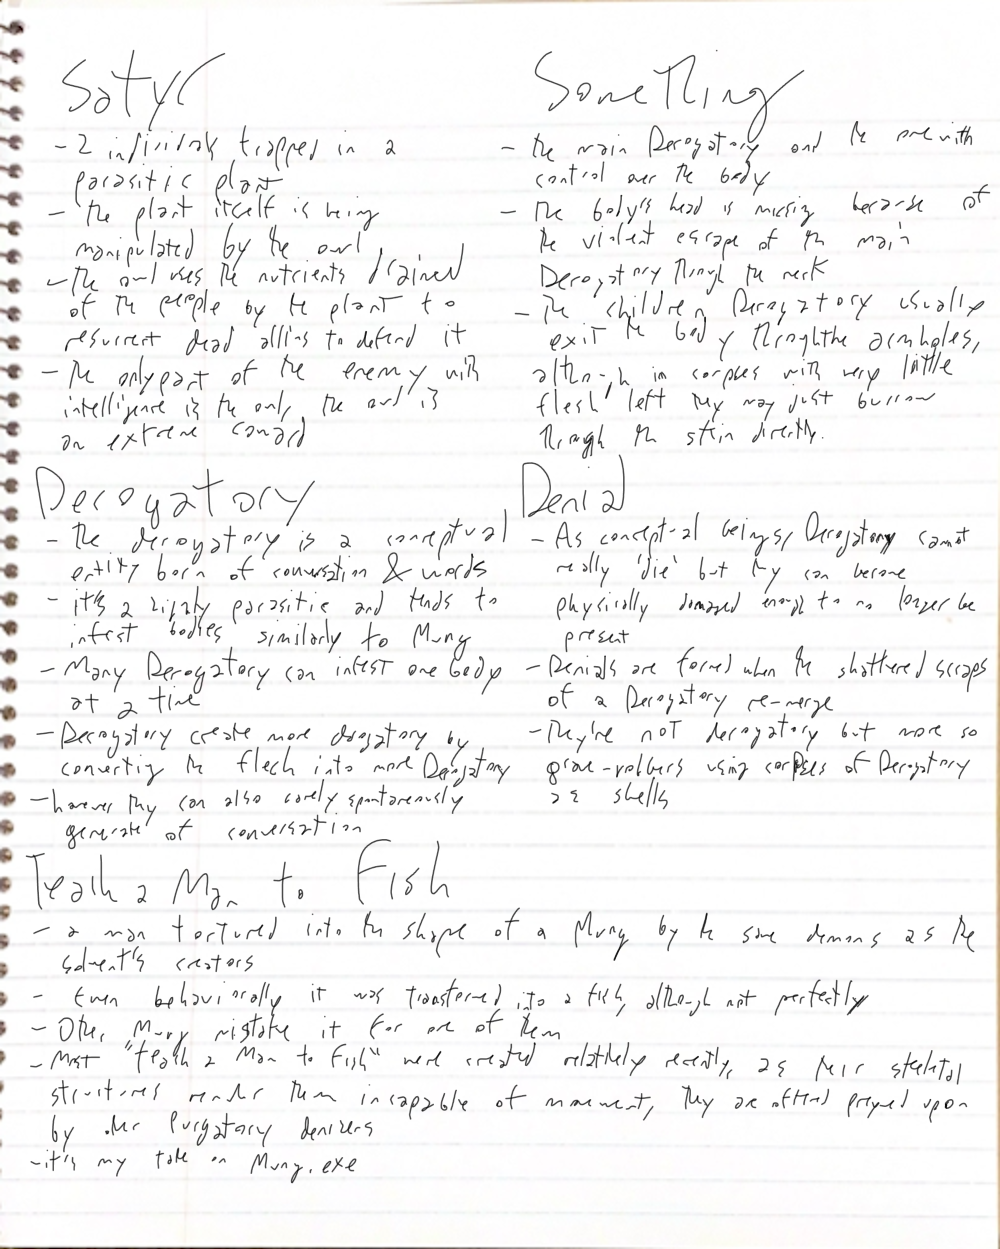 Satyr
- 2 individuals trapped in a
parasitic plant
- the plant itself is being
manipulated by the owl
- the owl uses the nutrients drained
of the people by the plant to
resurrect dead allies to defend it
- the only part of the enemy with
intelligence is the owl, the owl is
an extreme coward
Something
- the main Derogatory and the one with
control over the body
- the body's head is missing because of
the violent escape of the main
Derogatory through the neck
- the children Derogatory usually
exit the body through the armholes,
although in corpses with very little
flesh left they may just burrow
through the skin directly.
Derogatory
- the derogatory is a conceptual
entity born of conversation & words
- it's a highly parasitic and tends to
infest bodies similarly to Mung
- Many Derogatory can infest one body
at a time
- Derogatory create more derogatory by
converting the flesh into more Derogatory
- however they can also rarely spontaneously
generate of conversation
Denial
- As conceptual beings, Derogatory cannot
really 'die' but they can become
physically damaged enough to no longer be
present
- Denials are formed when the shattered scraps
of a Derogatory re-merge
- They're not derogatory but more so
grave-robbers using corpses of Derogatory
as shells
Teach a Man to Fish
- a man tortured into the shape of a Mung by the same demons as the
solvent's creators
- Even behaviorally it was transferred into a fish, although not perfectly
- Other Mung mistake it for one of them
- Most "Teach a Man to Fish" were created relatively recently, as their skeletal
structures render them incapable of movement, they are often preyed upon
by other Purgatory denizens
- it's my take on Mung.exe